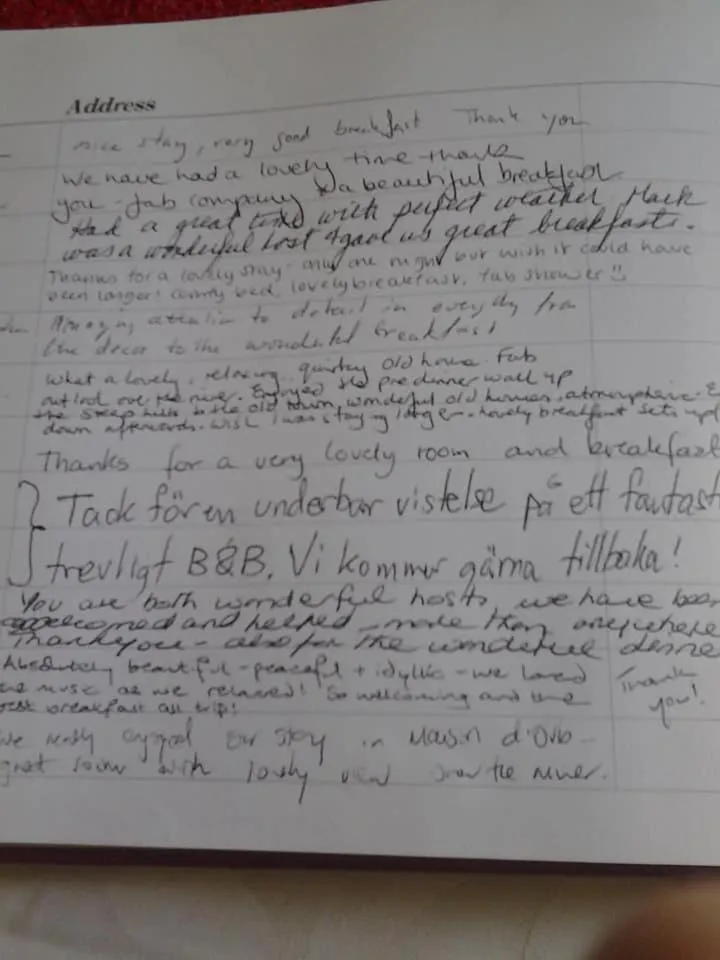 Address
nice stay, very good breakfast Thank you
We have had a lovely time thank
you - fab company & a beautiful breakfast.
Had a great time with perfect weather Mack
was a wonderful host & gave us great breakfasts.
Thanks for a lovely stay - only one night but wish it could have
been longer! comfy bed, lovely breakfast, fab shower
Amazing attention to detail in everything from
the decor to the wonderful breakfast
What a lovely, relaxing, quirky old house. Fab
outlook over the river. Enjoyed the pre dinner walk up
the steep hills to the old town, wonderful old houses, atmosphere. &
down afterwards. Wish I was staying longer. Lovely breakfast sets up
Thanks for a very lovely room and breakfast
Tack för en underbar vistelse på ett fantast
trevligt B&B. Vi kommer gärna tillbaka!
You are both wonderful hosts, we have been
welcomed and helped more than anywhere
Thankyou - also for the wonderful
Absolutely beautiful - peaceful + idyllic - we loved
the music as we relaxed! So welcoming and the
best breakfast all trip!
Thank
you!
We really enjoyed our stay in Maison d'Orb -
great room with lovely view over the river.